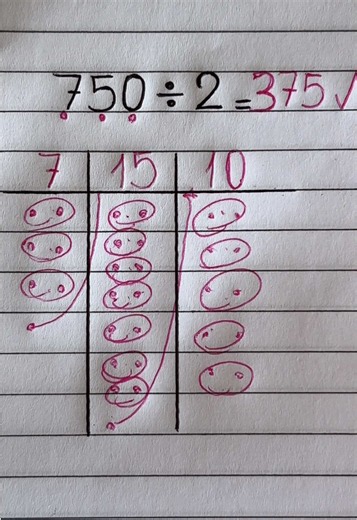 750÷2=375✓
7 15 10